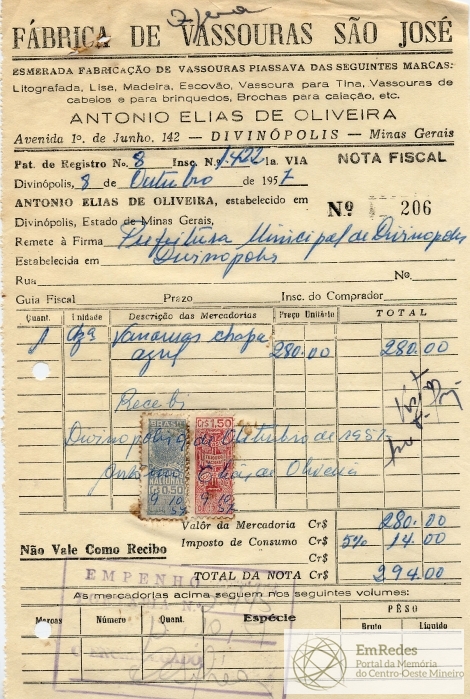 FÁBRICA DE VASSOURAS SÃO JOSÉ
ESMERADA FABRICAÇÃO DE VASSOURAS PIASSAVA DAS SEGUINTES MARCAS:
Litografada, Lisa, Madeira, Escovão, Vassoura para Tina, Vassouras de
cabelos e para brinquedos, Brochas para caiação, etc.
ANTONIO ELIAS DE OLIVEIRA
Avenida 1º. de Junho, 142 — DIVINÓPOLIS — Minas Gerais
Pat. de Registro No. 8 Insc. N.º 1.422 1a. VIA NOTA FISCAL
Divinópolis, 8 de Outubro de 1957
ANTONIO ELIAS DE OLIVEIRA, estabelecido em
Divinópolis, Estado de Minas Gerais,
Nº 206
Remete à Firma Prefeitura Municipal de Divinopolis
Estabelecida em Divinopolis
Rua No.
Guia Fiscal Prazo Insc. do Comprador
Quant. Unidade Descrição das Mercadorias Preço Unitário TOTAL
1 dza Vassouras chapa
azul 280.00 280.00
Recebi
Divinopolis 9 de Outubro de 1957
Antonio Elias de Oliveira
BRASIL
NACIONAL
C$ 0,50
C$ 1,50
9 10 57
9 10 57
Valor da Mercadoria Cr$ 280.00
Imposto de Consumo Cr$ 5% 14.00
Cr$
Não Vale Como Recibo
TOTAL DA NOTA Cr$ 294.00
EMPENHO
As mercadorias acima seguem nos seguintes volumes:
Marcas Número Quant. Espécie PÊSO
Bruto Líquido
EmRedes
Portal da Memória
do Centro-Oeste Mineiro